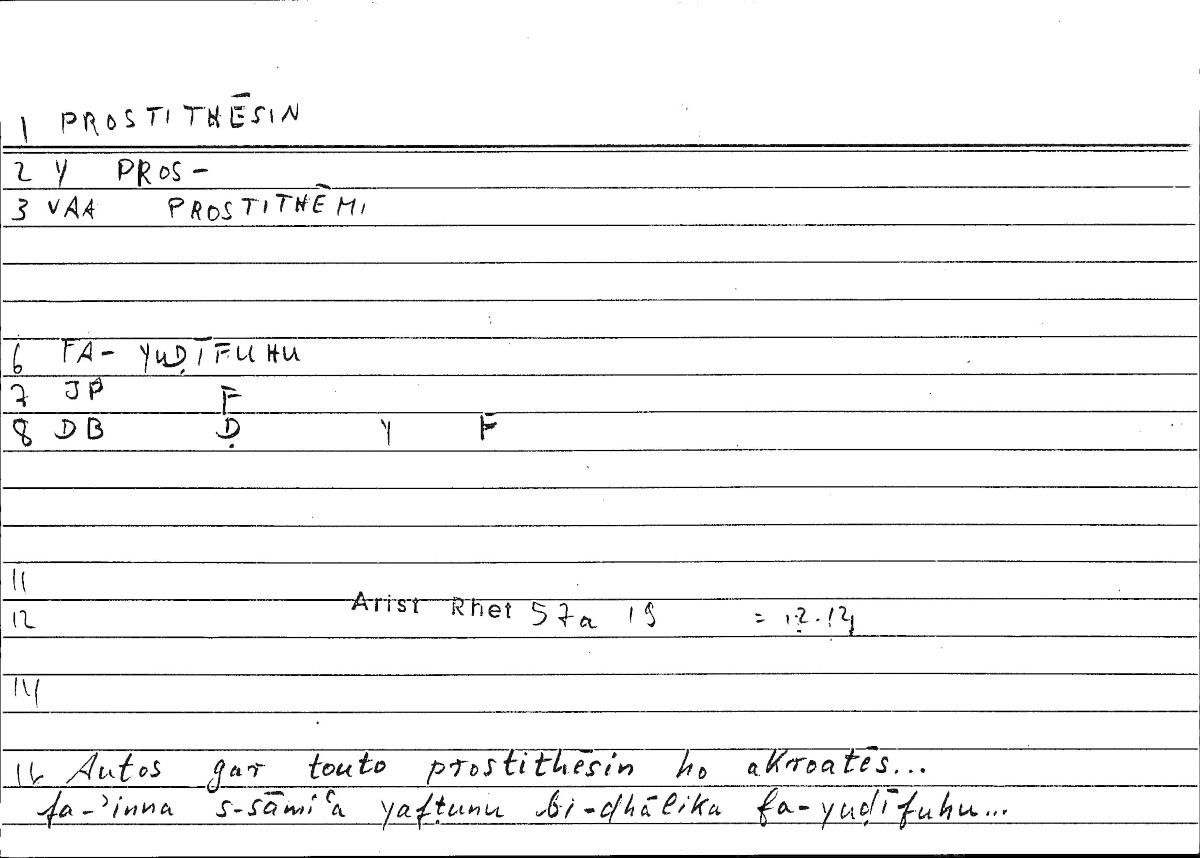 1 PROSTITHĒSIN
2 Y PROS-
3 VAA PROSTITHĒMI
6 FA- YUḌĪFUHU
7 JP F
8 DB Ḍ Y F
11
12 Arist Rhet 57a 19 = 12.14
14
16 Autos gar touto prostithēsin ho akroatēs...
fa-ʾinna s-sāmiʿa yafṭunu bi-dhālika fa-yuḍīfuhu...